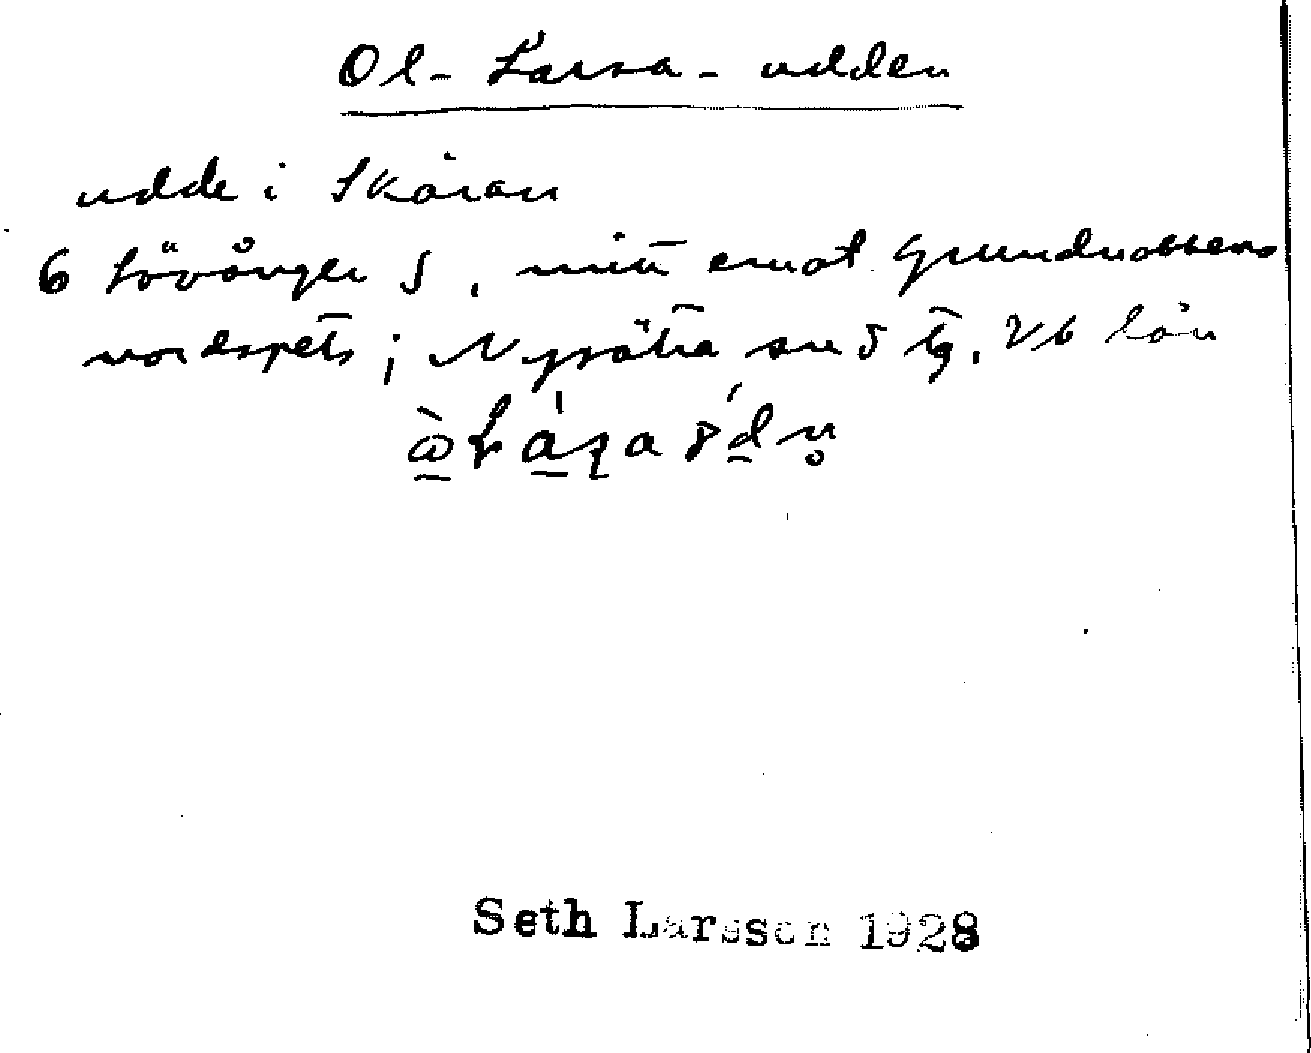 Ol-Larsa-udden
udde i Skäran
6 Lövånger S, mitt emot Grundnabbens
nordspets; Nysätra sn S tg. Vb län
Seth Larsson 1928